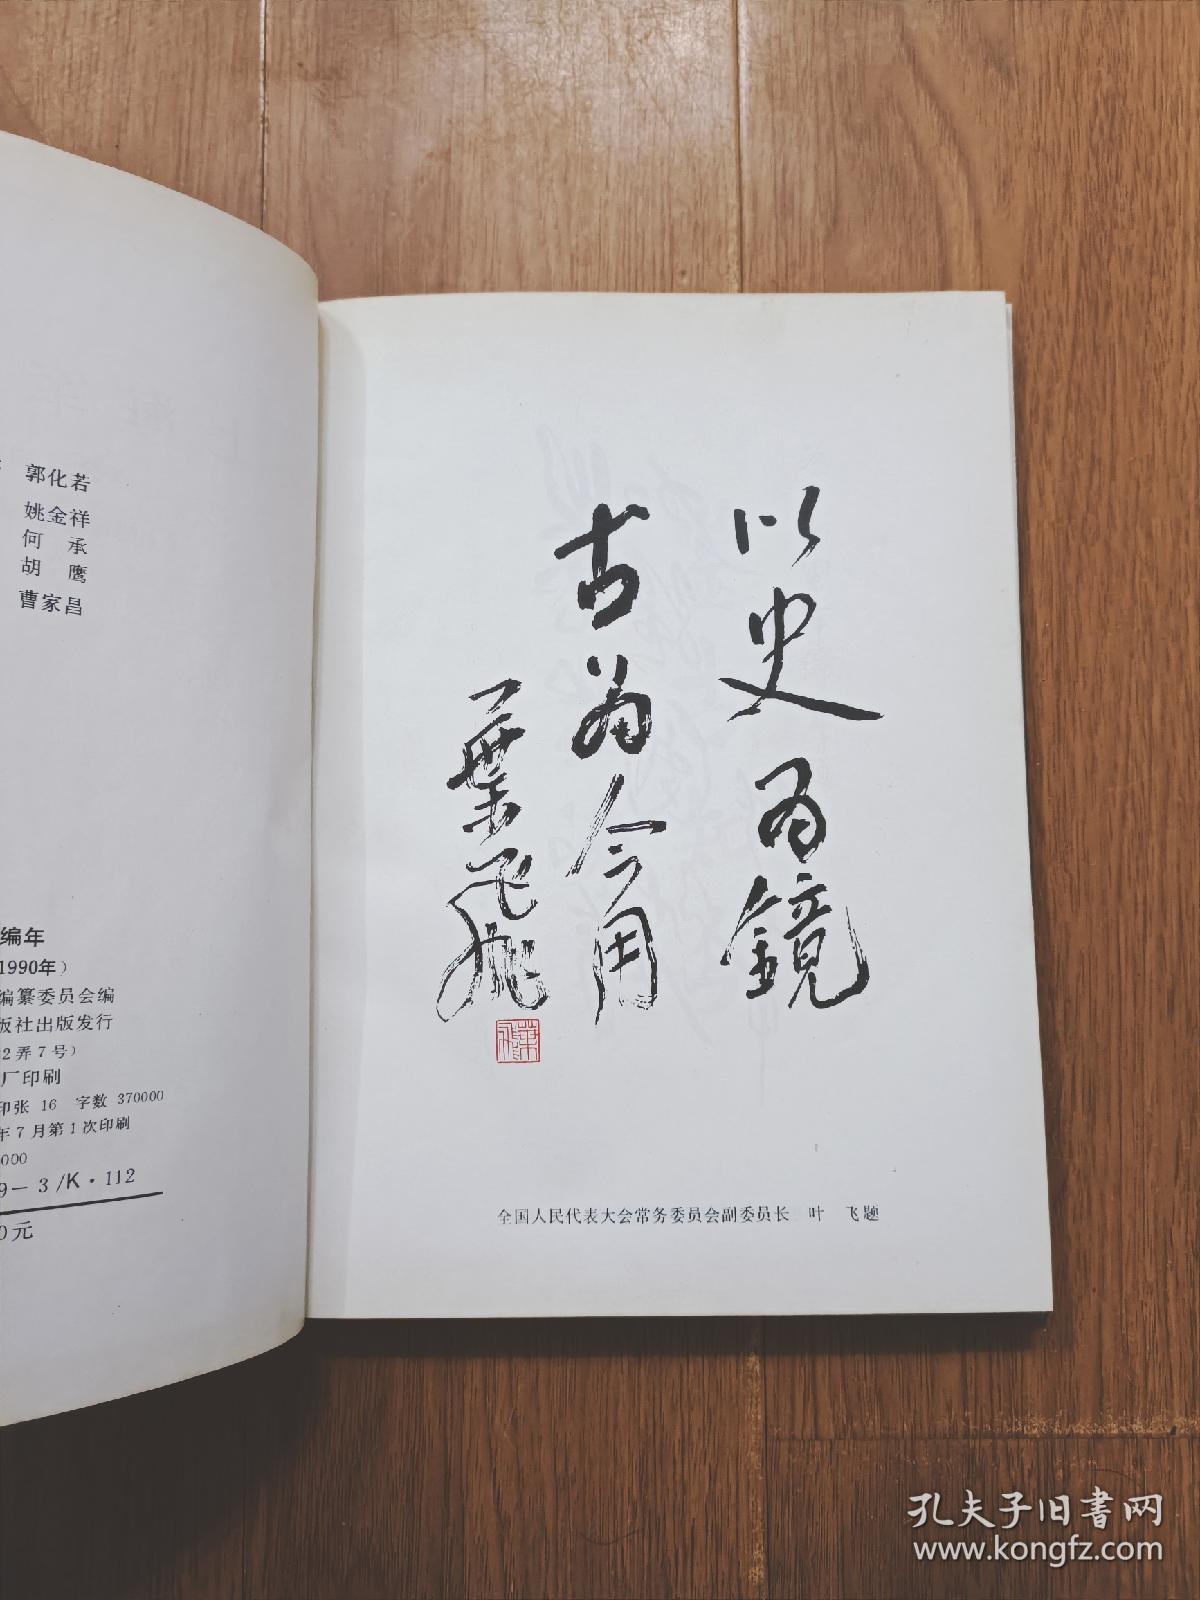 郭化若
姚金祥
何 承
胡 鹰
曹家昌
编年
1990年）
编纂委员会编
版社出版发行
2弄7号）
厂印刷
印张 16 字数 370000
年7月第1次印刷
000
9－3/K·112
0元
以史为鏡
古为今用
葉飛
葉飛
全国人民代表大会常务委员会副委员长 叶 飞题
孔夫子旧书网
www.kongfz.com